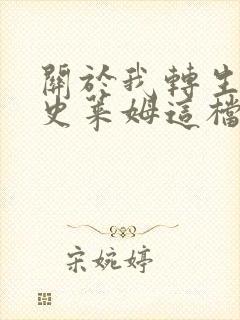 關於我轉生
史萊姆這檔
宋婉婷